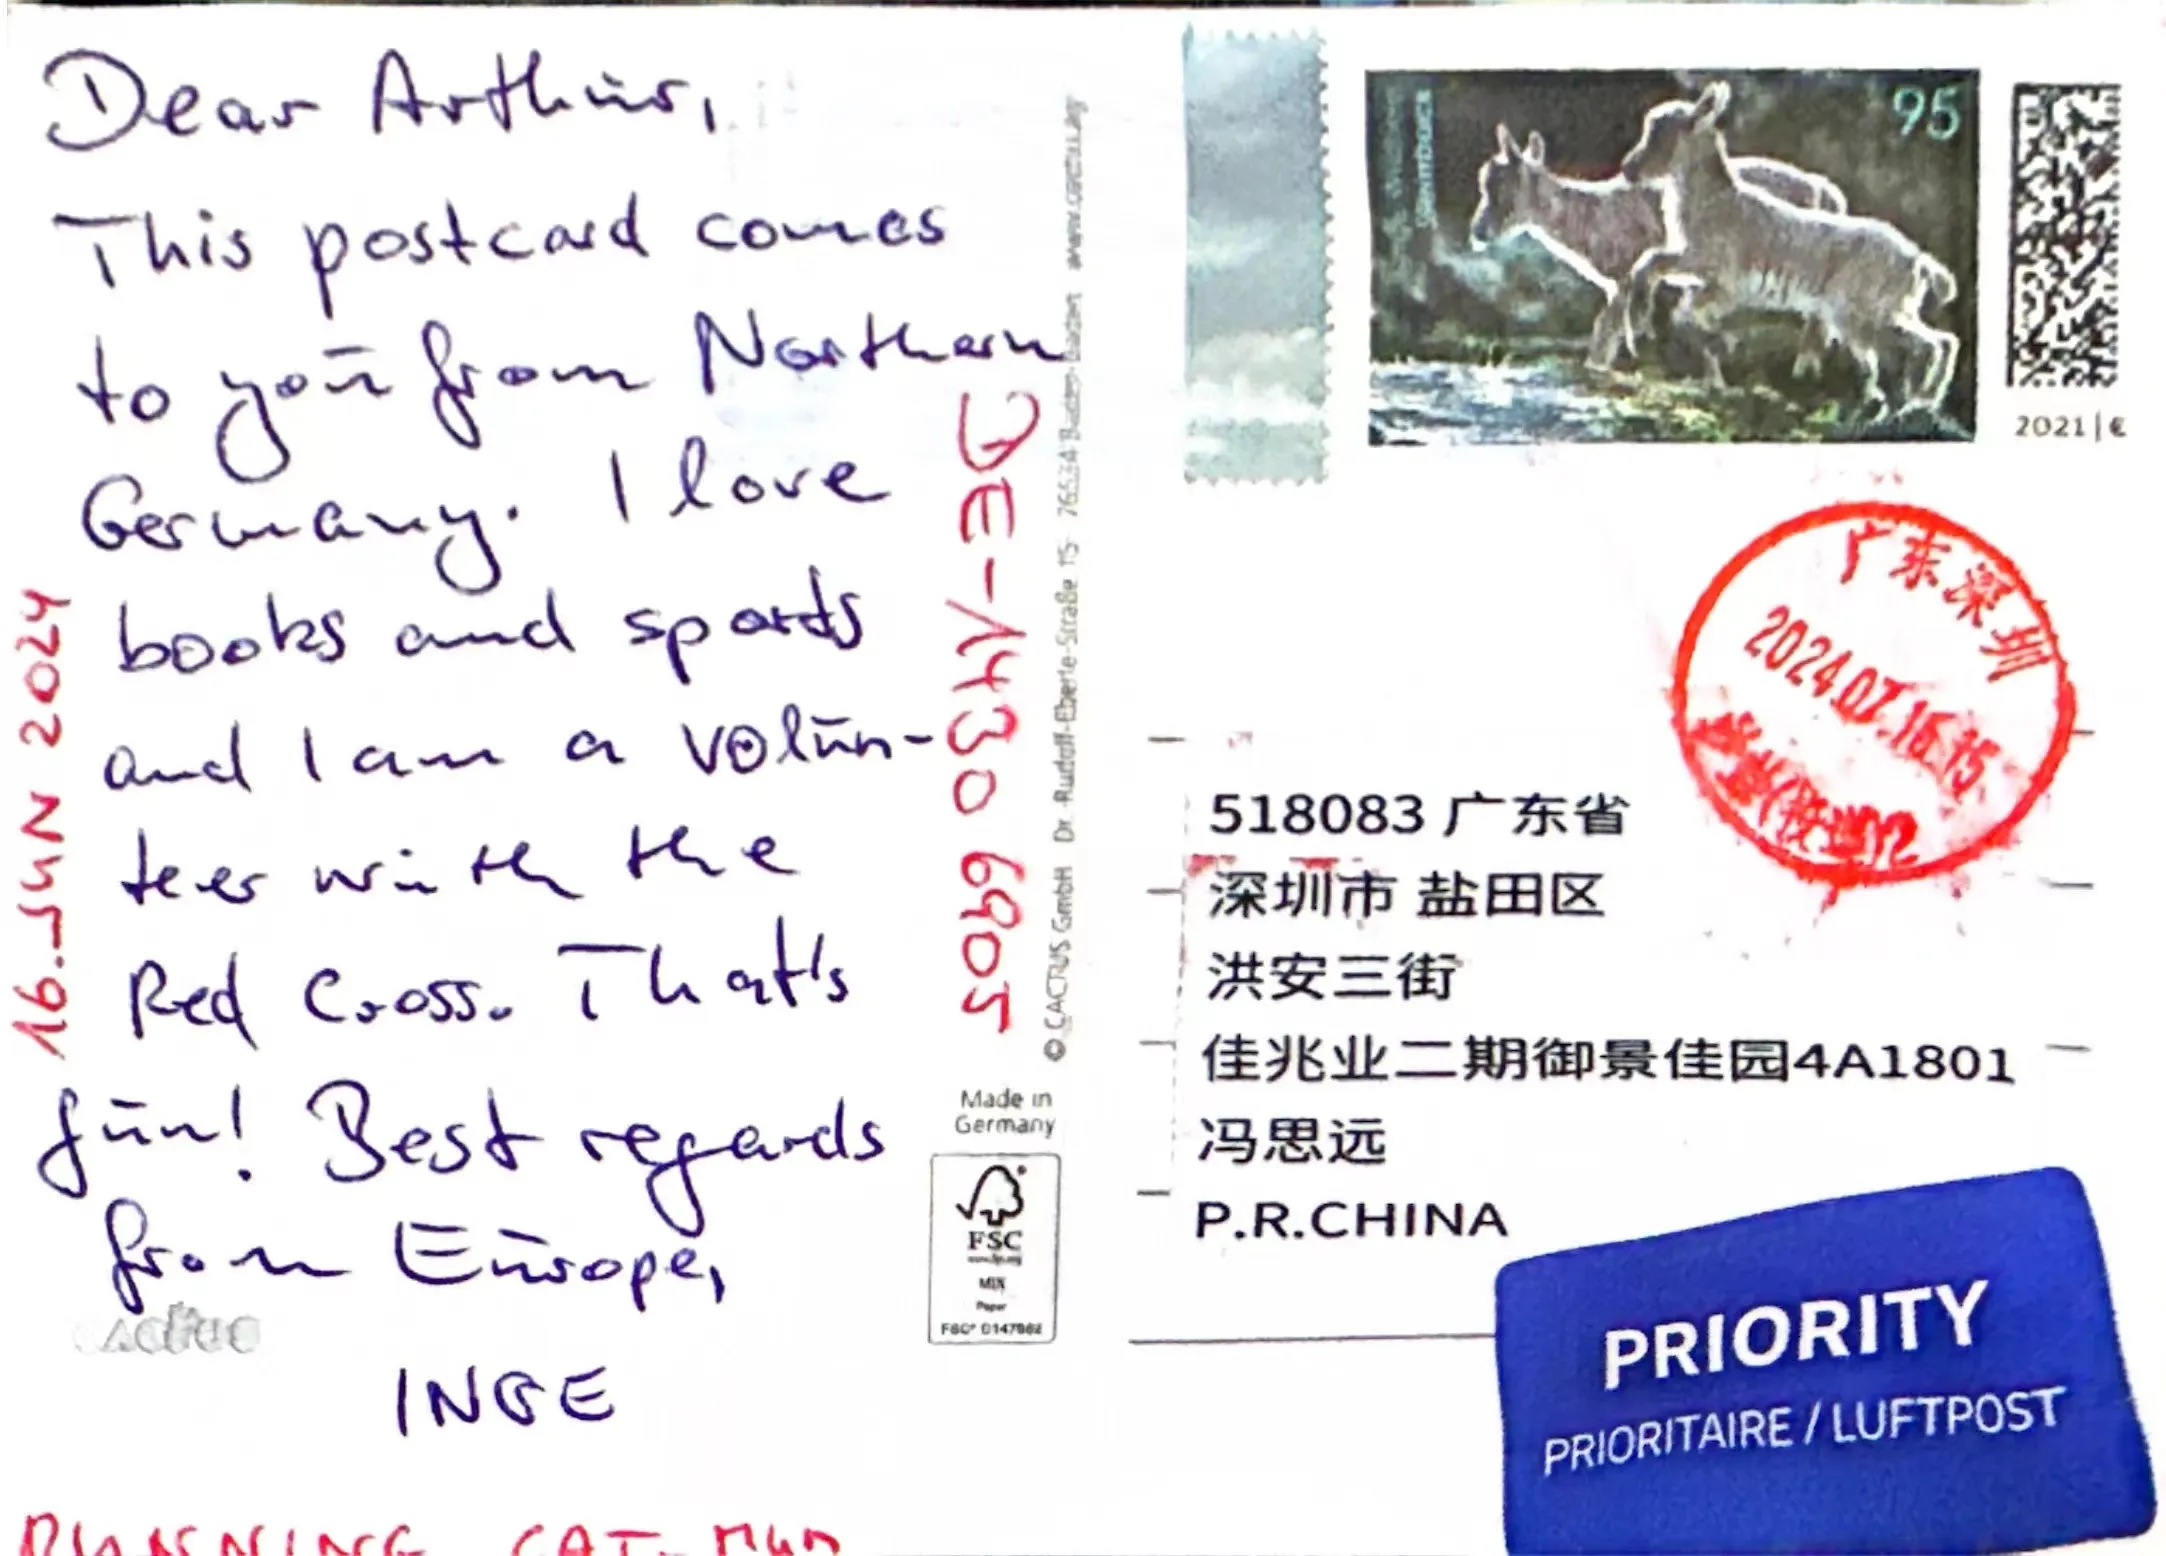 Dear Arthur,
This postcard comes
to you from Northern
Germany. I love
books and sports
and I am a volun-
teer with the
Red Cross. That's
fun! Best regards
from Europe,
INGE
16. JUN 2024
DE-14306905
RUNNING CAT-MUM
cactus
© CACTUS GmbH Dr.-Rudolf-Eberle-Straße 15 76534 Baden-Baden www.cactus.ag
Made in
Germany
FSC
MIX
Paper
95
2021 | €
广东深圳
2024.07.16.15
518083 广东省
深圳市 盐田区
洪安三街
佳兆业二期御景佳园4A1801
冯思远
P.R.CHINA
PRIORITY
PRIORITAIRE / LUFTPOST